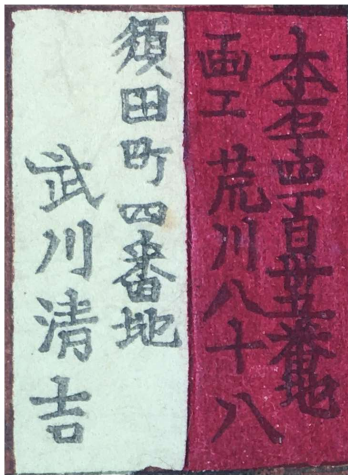 本 四百卅五番地
画工 荒川八十八
須田町四番地
武川清吉